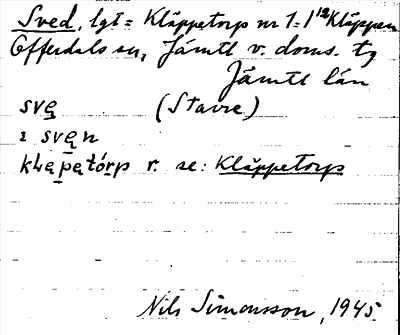 Sved, lgt = Kläppetorp nr 1:1¹² Kläppen
Offerdals sn, Jämtl v. doms. tg
Jämtl län
svę (Stavre)
ɪ svęn
kLępetórp r. se: Kläppetorp
Nils Simonsson, 1945